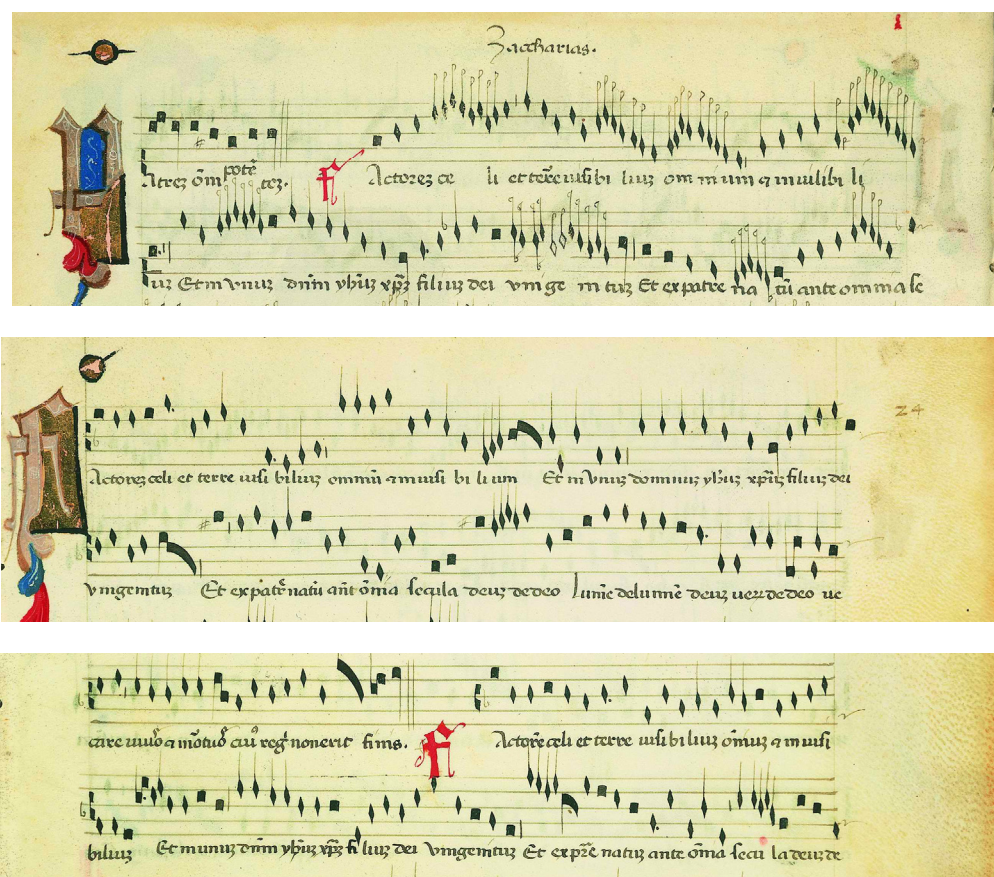 Zaccharias.
Patrez om̅ potē tez. Factorez ce li et terre uisibi liuz om ni um ꝫ inuisibi li
uz Et in vnuz dn̅m yhuz xpz̅ filiuz dei vnige ni tuz Et ex patre na tū ante omnia se
24
Factorez celi et terre uisi biliuz omniū ꝫ inuisi bi li um Et in vnuz dominuz yhuz xpūz filiuz dei
vnigenituz Et ex patre natū ant̄ om̅ia secula deuz de deo lum̅e de lumn̅e deuz uerz de deo ue
care uiuo ꝫ motuo cui reg non erit finis. Factorē celi et terre uisi biliuz om̅iuz ꝫ inuisi
biliuz Et in unuz dn̅m yhuz xpz̅ fi liuz dei vnigenituz Et ex pr̅e natuz ante om̅a secu la deuz de